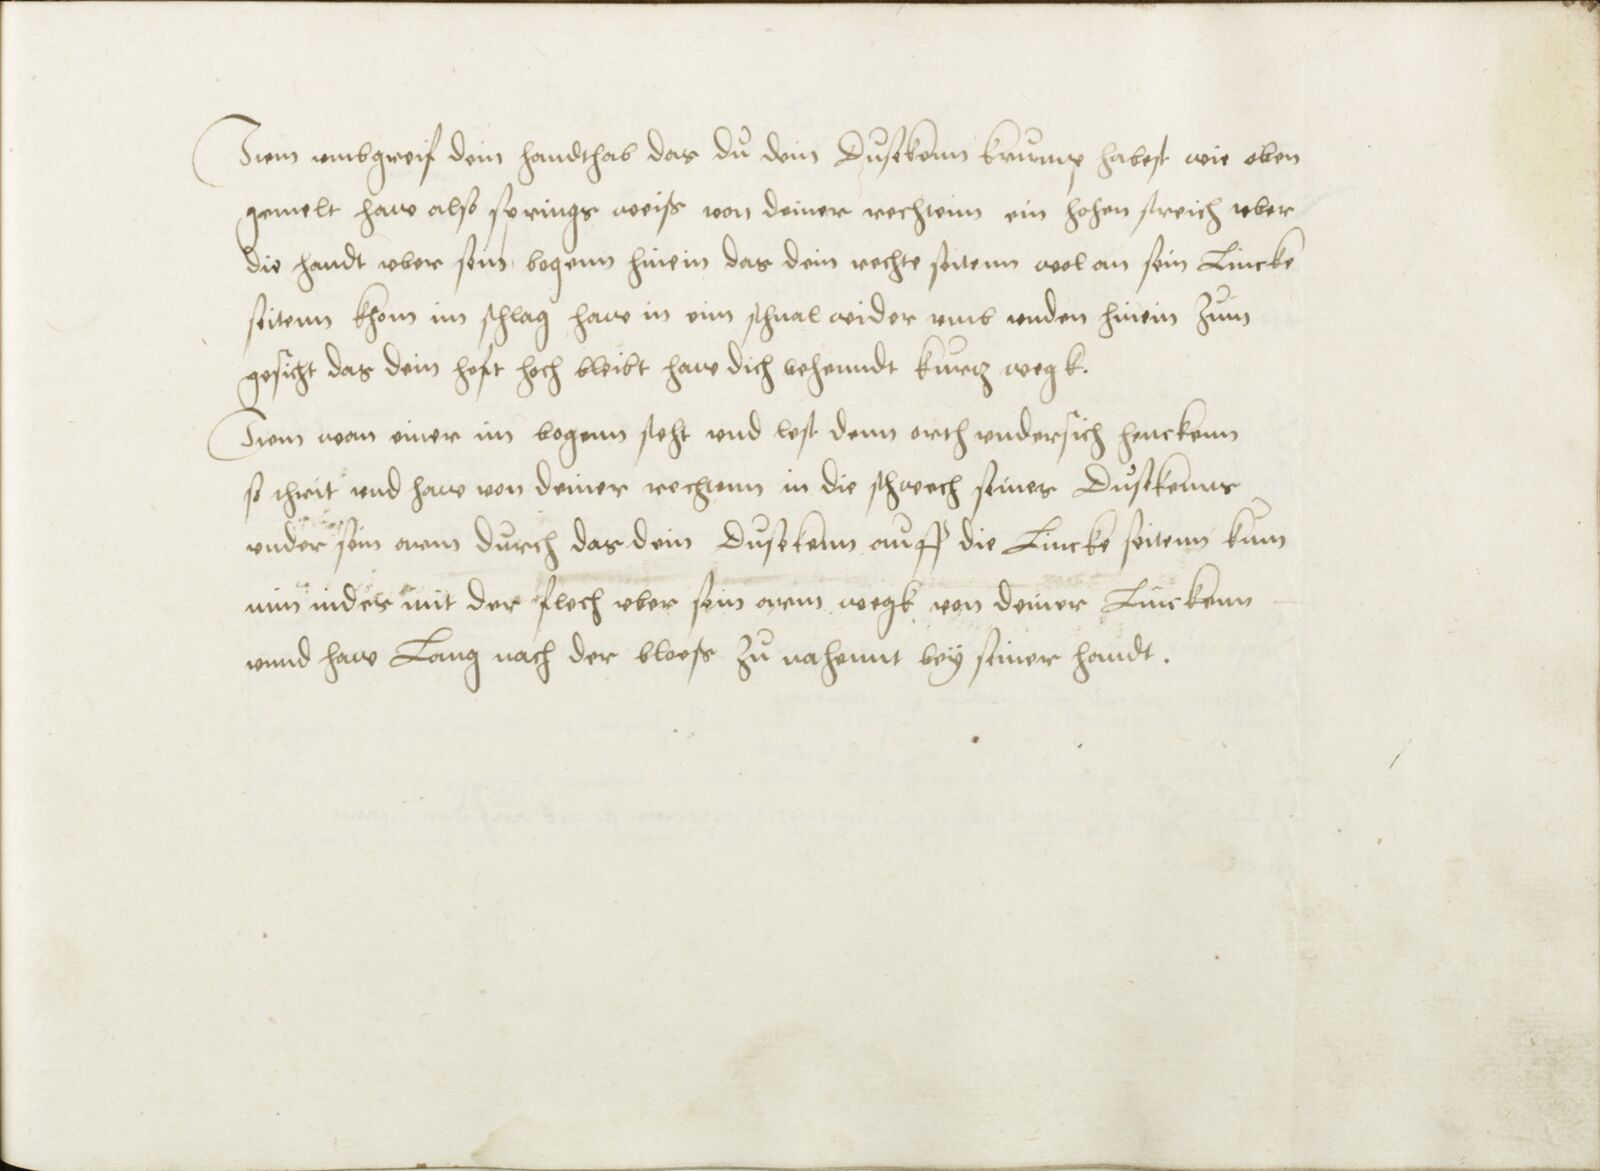 Item umbgreif dein handthab das du dein Dusekenn krump habest wie oben
gemelt haw also springs weiss von deiner rechtenn ein hohen streich uber
die handt uber sein bogenn hinein das dein rechte seitenn wol an sein Lincke
seitenn khom im schlag haw in eim schnal wider umb unden hinein zum
gesicht das dein heft hoch bleibt haw dich behenndt kurtz wegk.
Item wan einer im bogenn steht und lest denn orth undersich henckenn
so schreit und haw von deiner rechtenn in die schwech seines Dusekenns
under sein arm durch das dein Dusekenn auff die Lincke seitenn kum
nim indes mit der flech uber sein arm wegk von deiner Linckenn
unnd haw Lang nach der bloess zu nahennt bey seiner handt.